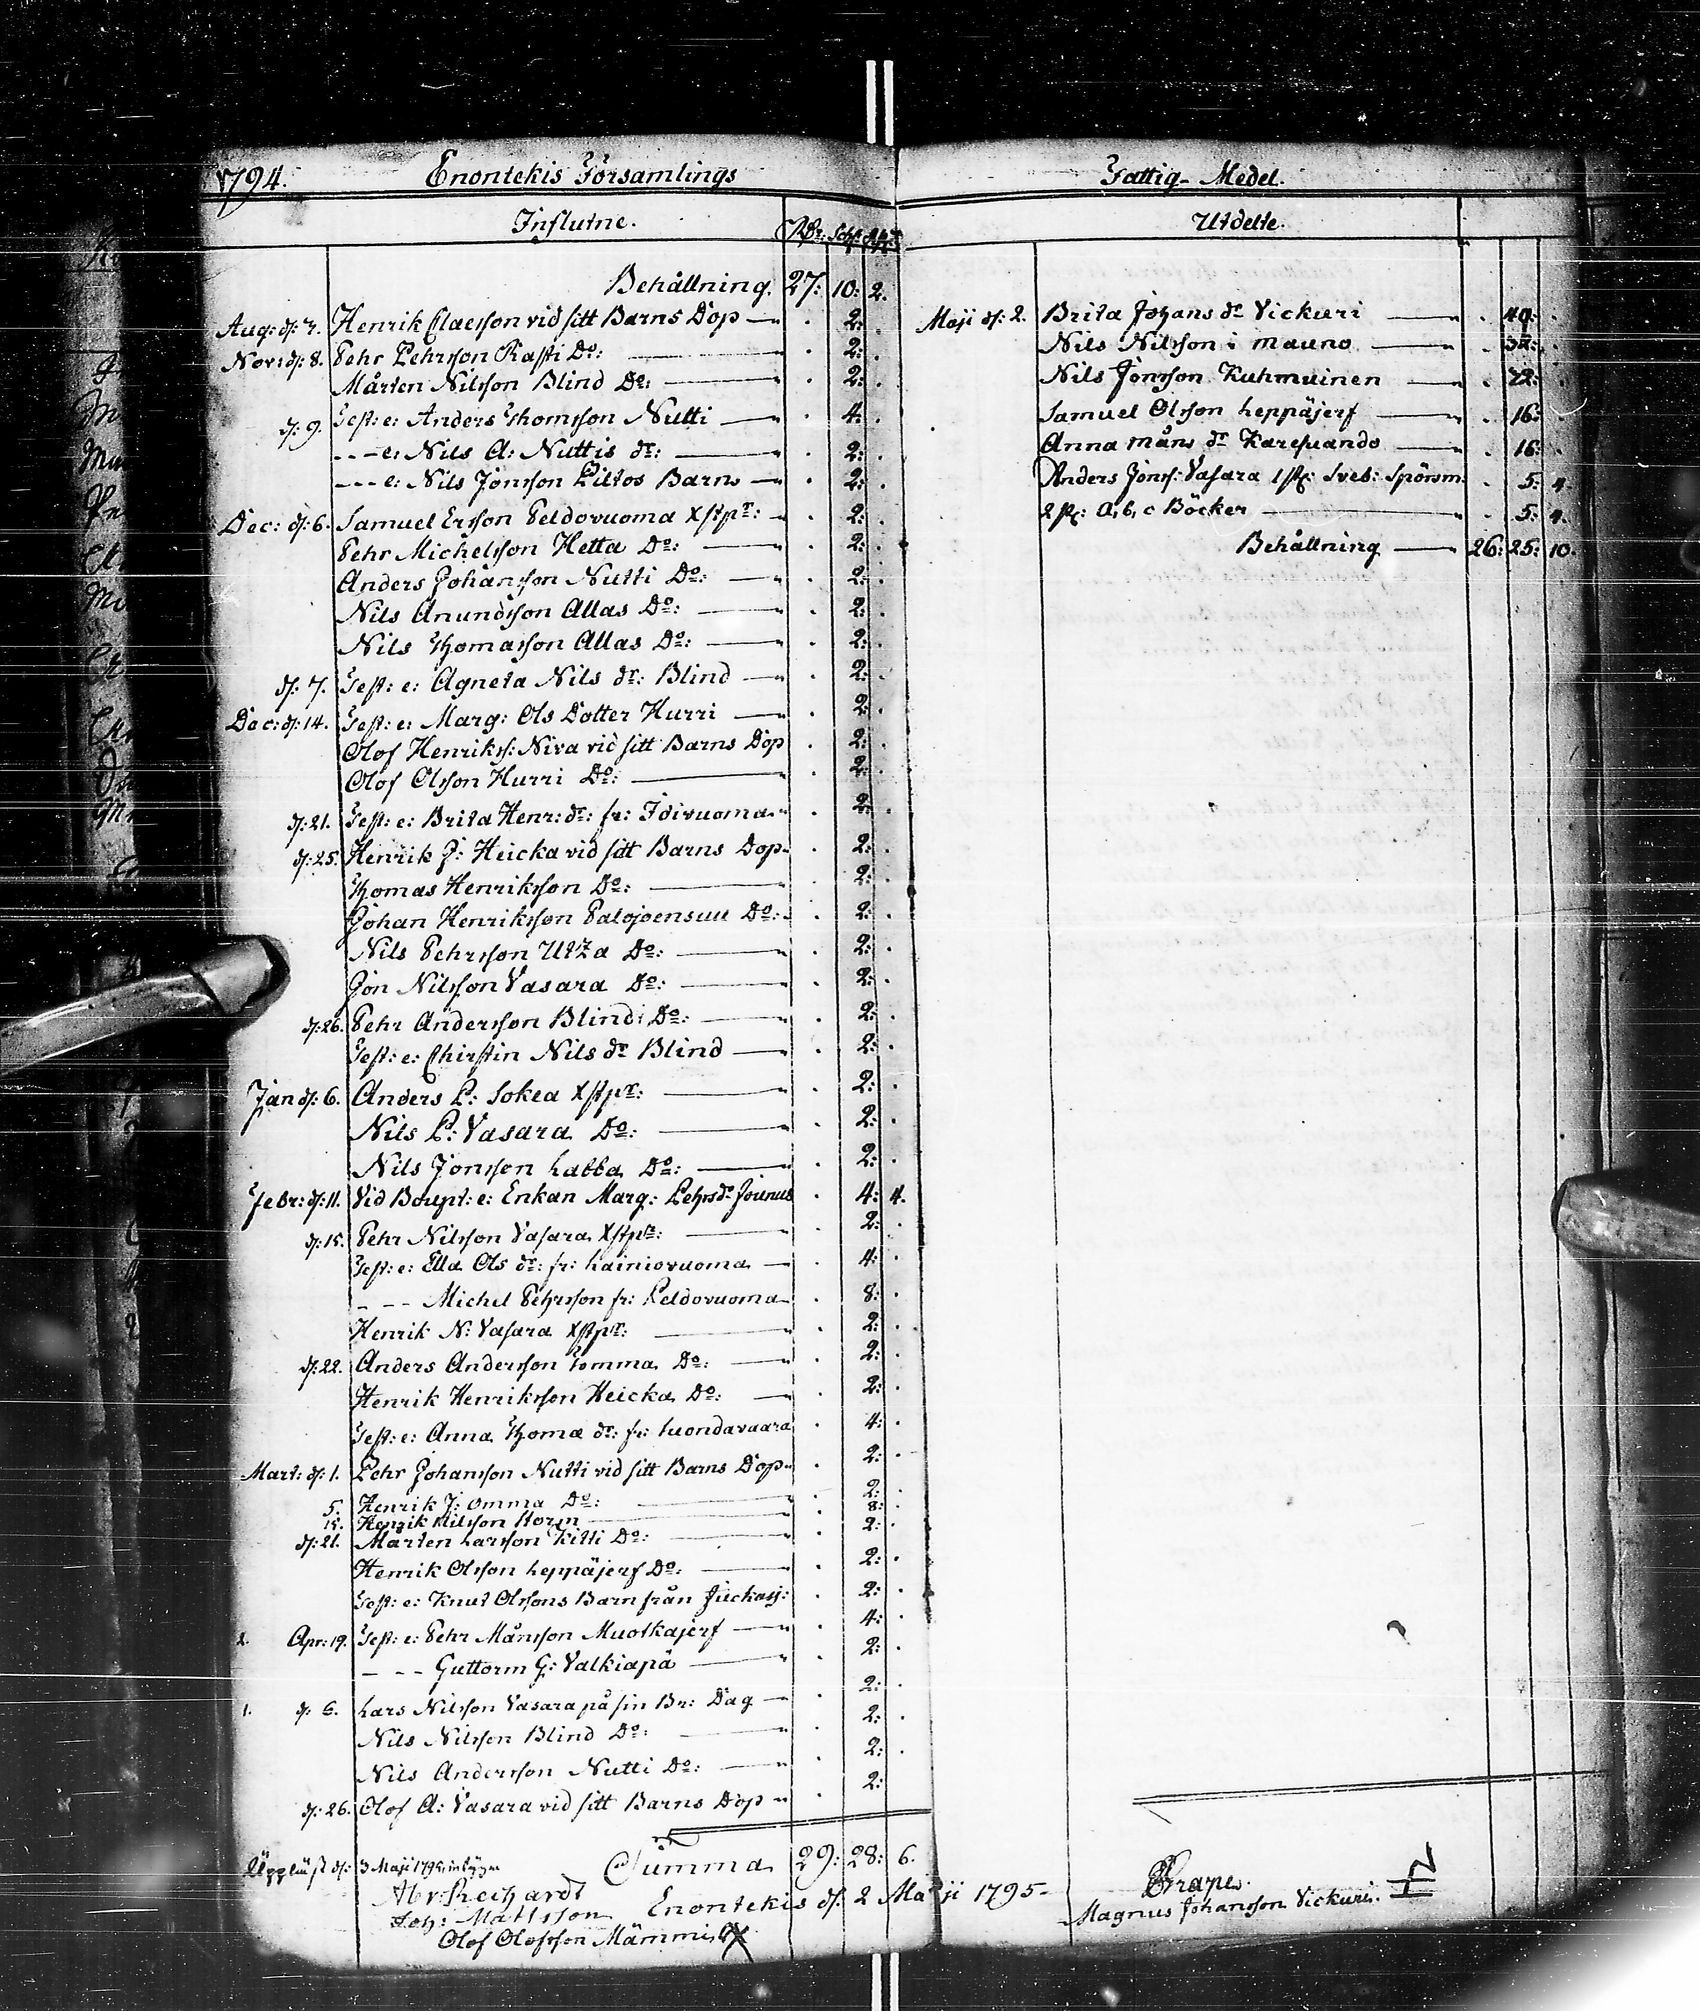 1794. Enontekis Församlings
Influtne. Rdr: Sch: rst:
Behållning. 27: 10: 2.
Aug: d: 7. Henrik Claesson vid sitt Barns Döp — . 2: .
Nov: d: 8. Pehr Pehrsson Rasti Do: — . 2: .
Mårten Nilsson Blind Do: — . 2: .
d: 9. Test: e: Anders Thomsson Nutti — . 4: .
- - - e: Nils A: Nuttis dr: — . 2: .
- - - e: Nils Jönsson Piltos Barn — . 2: .
Dec: d: 6. Samuel Ersson Peldovuoma Xstpr: — . 2: .
Pehr Michelsson Hetta Do: — . 2: .
Anders Johansson Nutti Do: — . 2: .
Nils Anundsson Allas Do: — . 2: .
Nils Thomasson Allas Do: — . 2: .
d: 7. Test: e: Agneta Nils dr: Blind — . 2: .
Dec: d: 14. Test: e: Marg: Ols Dotter Hurri — . 2: .
Olof Henrikss: Niva vid sitt Barns Döp . 2: .
Olof Olsson Hurri Do: — . 2: .
d: 21. Test: e: Brita Henr: dr: fr: Idivuoma . 2: .
d: 25. Henrik J: Heicka vid sitt Barns Dop . 2: .
Thomas Henriksson Do: — . 2: .
Johan Henriksson Palojoensuu Do: . 2: .
Nils Pehrsson Utza Do: — . 2: .
Jon Nilsson Vasara Do: — . 2: .
d: 26. Pehr Andersson Blind Do: — . 2: .
Test: e: Chirstin Nils dr Blind — . 2: .
Jan d: 6. Anders P: Sokea Xstpr: — . 2: .
Nils P: Vasara Do: — . 2: .
Nils Jonsson Labba Do: — . 2: .
Febr: d: 11. Vid Boupt: e: Enkan Marg: Pehrs dr Jounus . 4: 4.
d: 15. Pehr Nilsson Vasara Xstpr: — . 2: .
Test: e: Ella Ols dr: fr: Lainiovuoma — . 4: .
- - - Michel Pehrsson fr: Peldovuoma . 8: .
Henrik N: Vasara Xstpr: — . 2: .
d: 22. Anders Andersson Tomma Do: — . 2: .
Henrik Henriksson Heicka Do: — . 2: .
Test: e: Anna Thoma dr: fr: Luondavaara . 4: .
Mart: d: 1. Pehr Johansson Nutti vid sitt Barns Döp . 2: .
5. Henrik J: Omma Do: — . 2: .
15. Henrik Nilsson Storm — 8: .
d: 21. Mårten Larsson Kitti Do: — . 2: .
Henrik Olsson Leppäjerf Do: — . 2: .
Test: e: Knut Olssons Barn från Juckasj: . 2: .
2. Apr: 19. Test: e: Pehr Månsson Muotkajerf — . 4: .
- - - Guttorm G: Valkiapä — . 2: .
1. d: 6. Lars Nilsson Vasara på sin Br: Dag — . 2: .
Nils Nilsson Blind Do: — . 2: .
Nils Andersson Nutti Do: — . 2: .
d: 26. Olof A: Vasara vid sitt Barns Döp . 2:
Summa 29: 28: 6.
Uppläst d: 3 Maji 1795
Abr: Reichardt
Joh: Mattsson
Enontekis d: 2 Maji 1795-
Olof Olofsson Mämmi
Fattig- Medel.
Utdelte.
Maji d: 2. Brita Johans dr Vickuri — . 40: .
Nils Nilsson i Mauno — . 32: .
Nils Jönsson Kuhmuinen — . 72: .
Samuel Olsson Leppäjerf — . 16: .
Anna Måns dr Karesuando — . 16: .
Anders Jönss: Vasara 1 st: Sveb: Spörsm. . 5: 4.
2 st: a, b, c Böcker — . 5: 4.
Behållning — 26: 25: 10.
EGrape.
Magnus Johansson Vickuri.